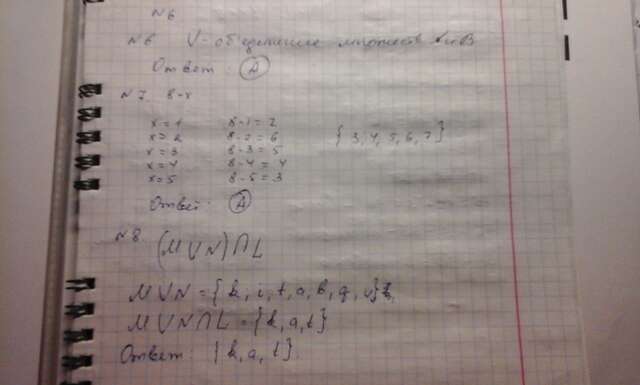 №6
№6 U - объединение множеств A и B
Ответ: (A)
№7 8-x
x=1 8-1=7
x=2 8-2=6 {3,4,5,6,7}
x=3 8-3=5
x=4 8-4=4
x=5 8-5=3
Ответ: (A)
№8 (M U N) ∩ L
M U N = {k, i, t, a, b, g, v}
M U N ∩ L = {k, a, t}
Ответ: {k, a, t}